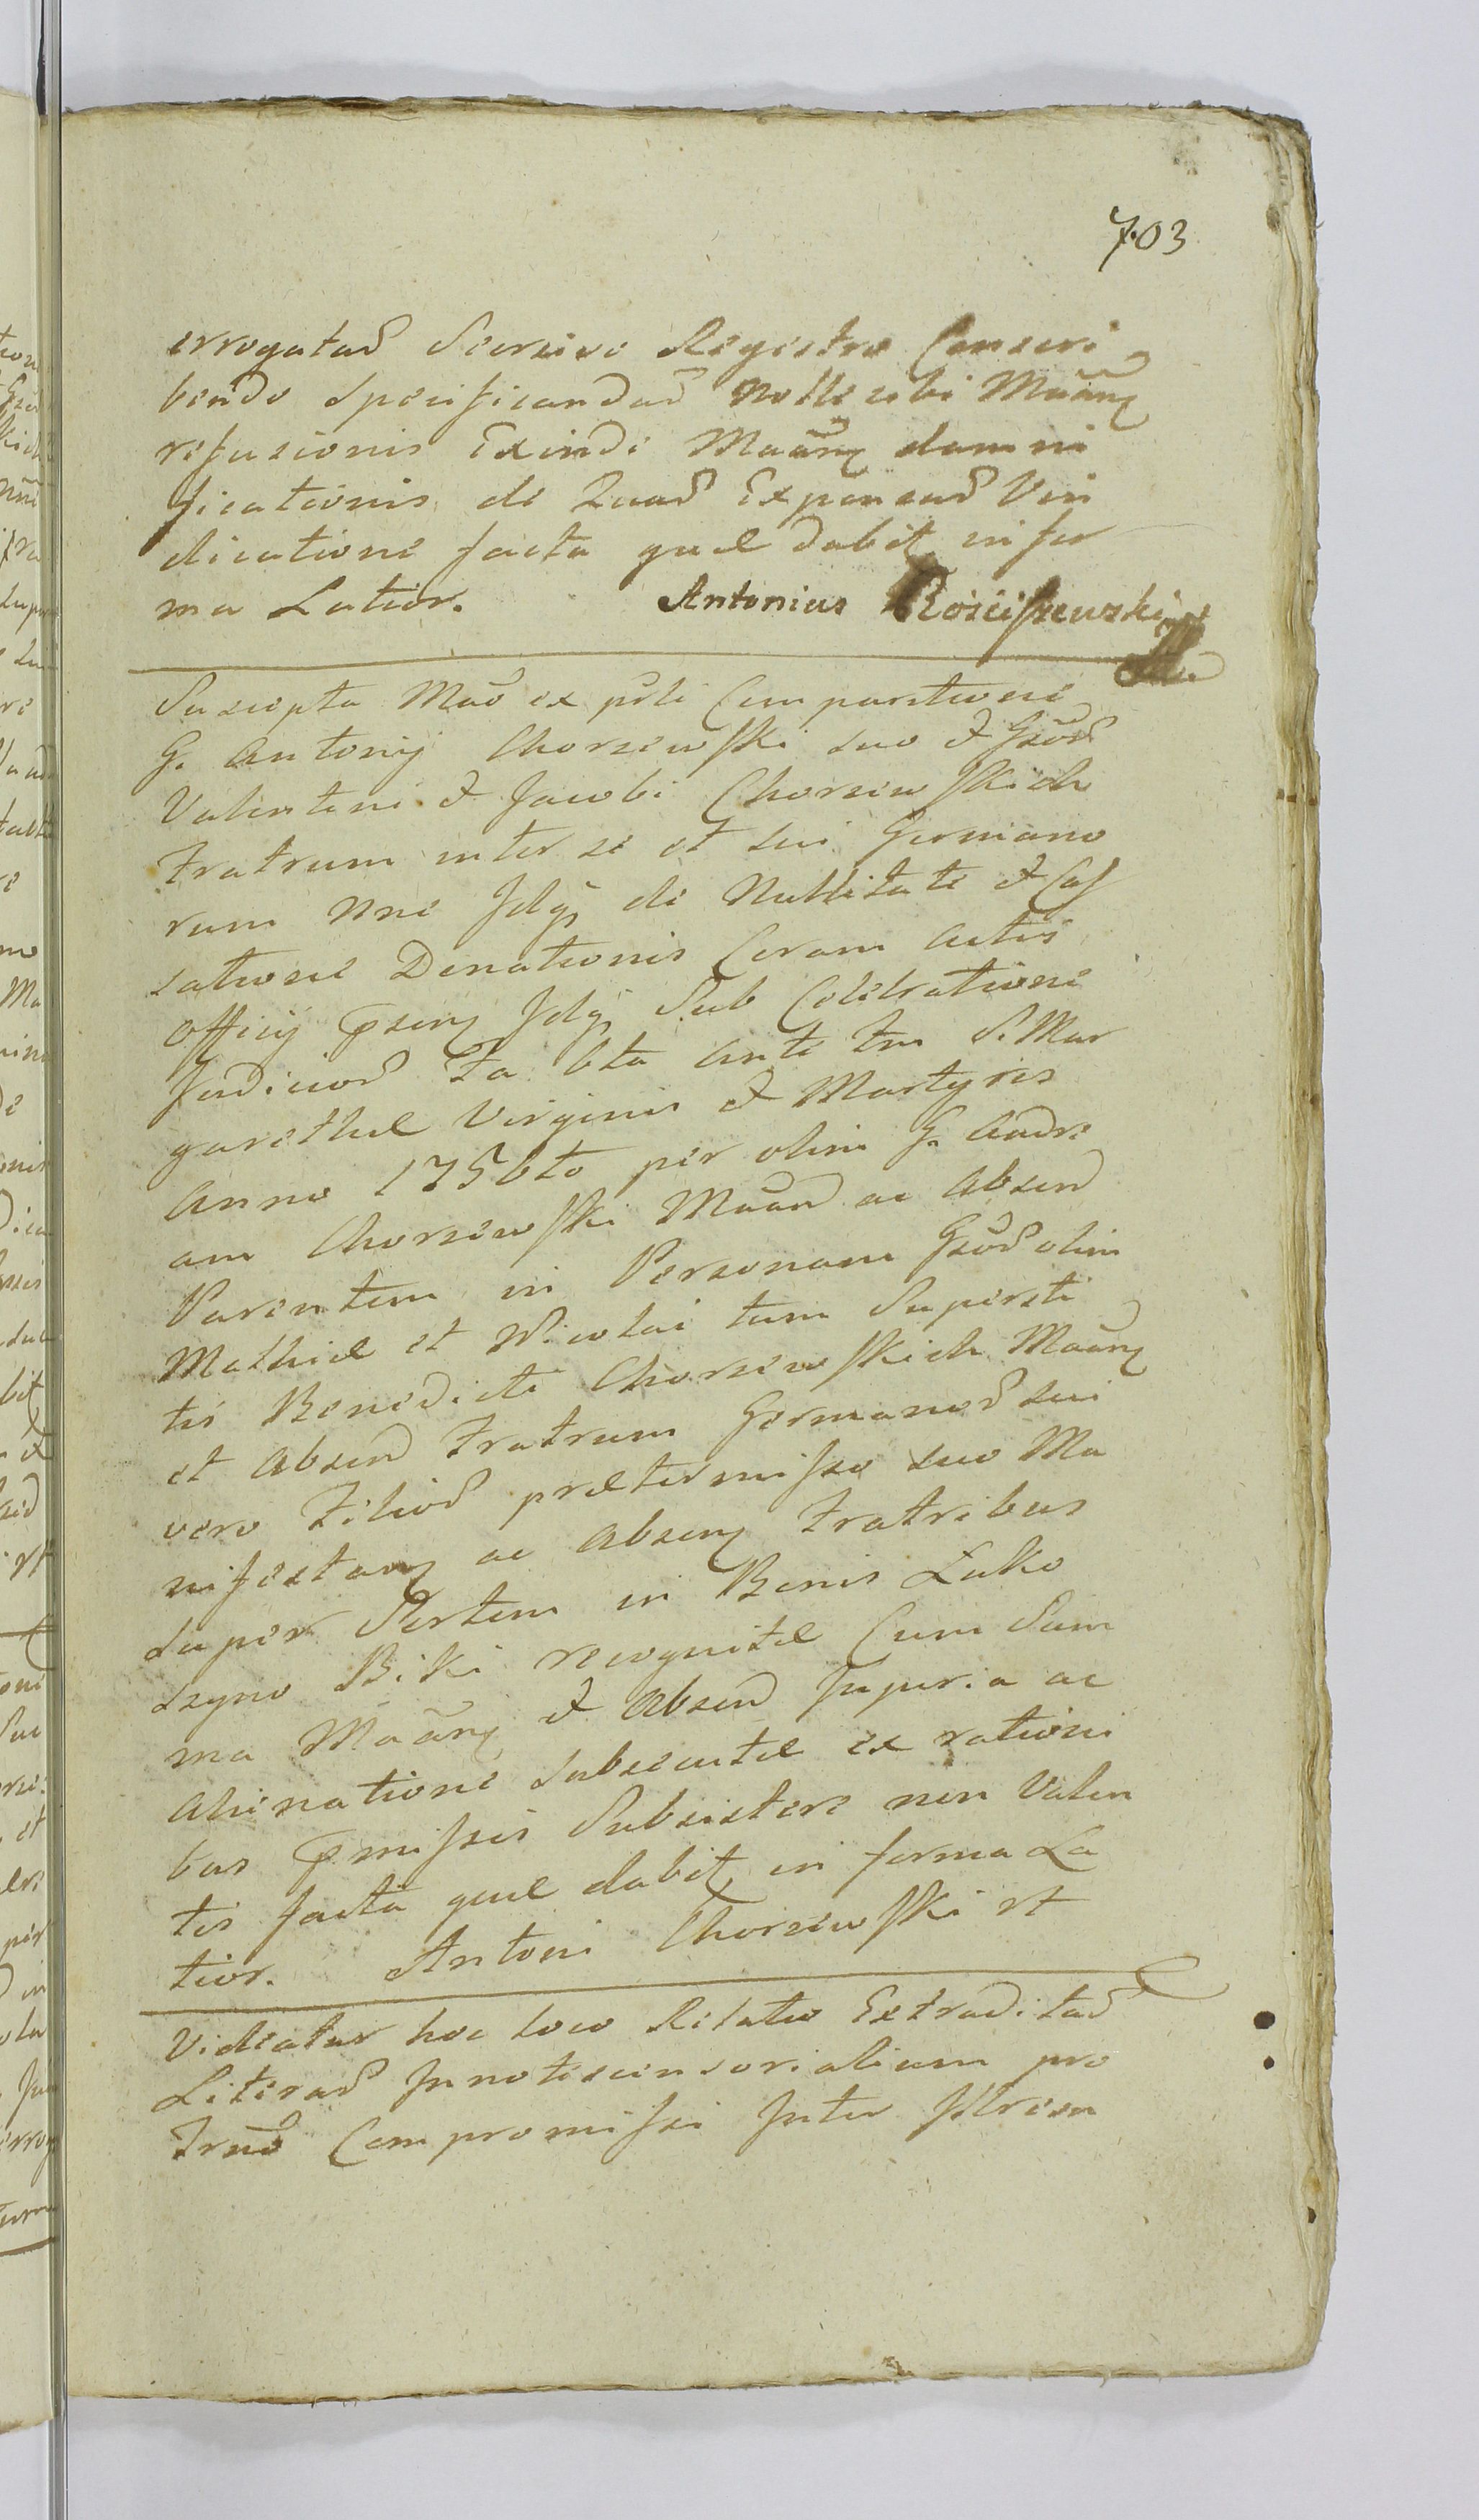 703
errogatas Seorsivo Regestro Conscri
bendo Specificandas nolle sibi Mãnẽ
refusionis Exinde Mãnẽ damni
ficationis de Quas Expensas Vin
dicatione facta quæ dabit in for
ma Latior. Antonius Rościszewski
Suscepta Mão ex pñli Comparitione
G. Antonij Chorzewski suo & Gñor
Valentini & Jacobi Chorzewskich
Fratrum inter se et sui Germano
rum nne Jdq de Nullitate & Cas
satione Donationis Coram Actis
Officij psenq Jdq Sub Celebratione
Judicior Fa 6ta Ante Fm S. Mar
garethæ Virginis & Martyris
Anno 1756to per olim G. Andre
am Chorzewski Mãan ac Absen
Parentem in Personam Gñor olim
Mathiæ et Nicolai tum Supersti
tis Benedicti Chorzewskich Mãnq
et Absen Fratrum Germanor sui
vero Filior prætermisso suo Ma
nifestanq ac Absenq Fratribus
super Sortem in Bonis Luko
szyno Biki recognitæ Cum Sum
ma Mãnq & Absen Injuria ac
Alienatione subsecutæ ex rationi
bus pmissis Subsistere non Valen
tis facta quæ dabit in forma La
tior. Antoni Chorzewski
Videatur hoc loco Relatio Extraditas
Literar Innotescensorialium pro
Frno Compromissi Inter